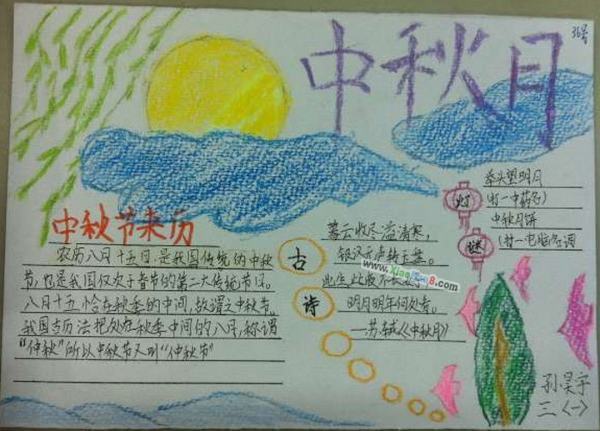 36号
中秋月
中秋节来历
农历八月十五日,是我国传统的中秋
节,也是我国仅次于春节的第二大传统节日。
八月十五恰在秋季的中间,故谓之中秋节。
我国古历法把处在秋季中间的八月,称谓
“仲秋”所以中秋节又叫“仲秋节”
古
诗
暮云收尽溢清寒,
银汉无声转玉盘。
此生此夜不长
明月明年何处看。
—苏轼《中秋月》
灯
谜
举头望明月
(打一中药名)
中秋月饼
(打一电脑名词
孙昊宇
三〈一〉